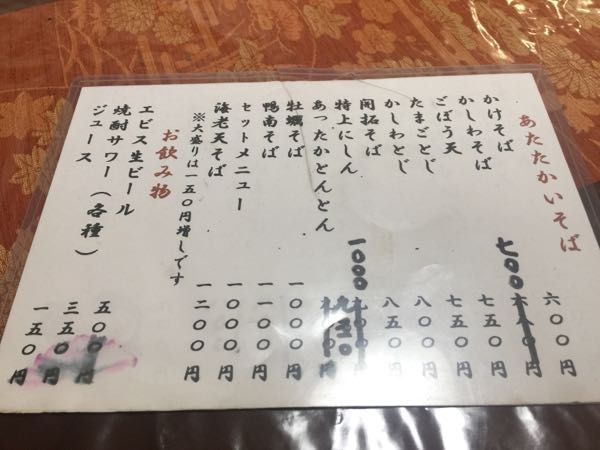 あたたかいそば
かけそば 六〇〇円
かしわそば 七〇〇円
ごぼう天 七五〇円
たまごとじ 七五〇円
かしわとじ 八〇〇円
開拓そば 八五〇円
特上にしん 一〇〇〇円
あったかとんとん 九五〇円
牡蠣そば 一〇〇〇円
鴨南そば 一一〇〇円
セットメニュー 一〇〇〇円
海老天そば 一二〇〇円
※大盛りは一五〇円増しです
お飲み物
エビス生ビール 五〇〇円
焼酎サワー(各種) 三五〇円
ジュース 一五〇円